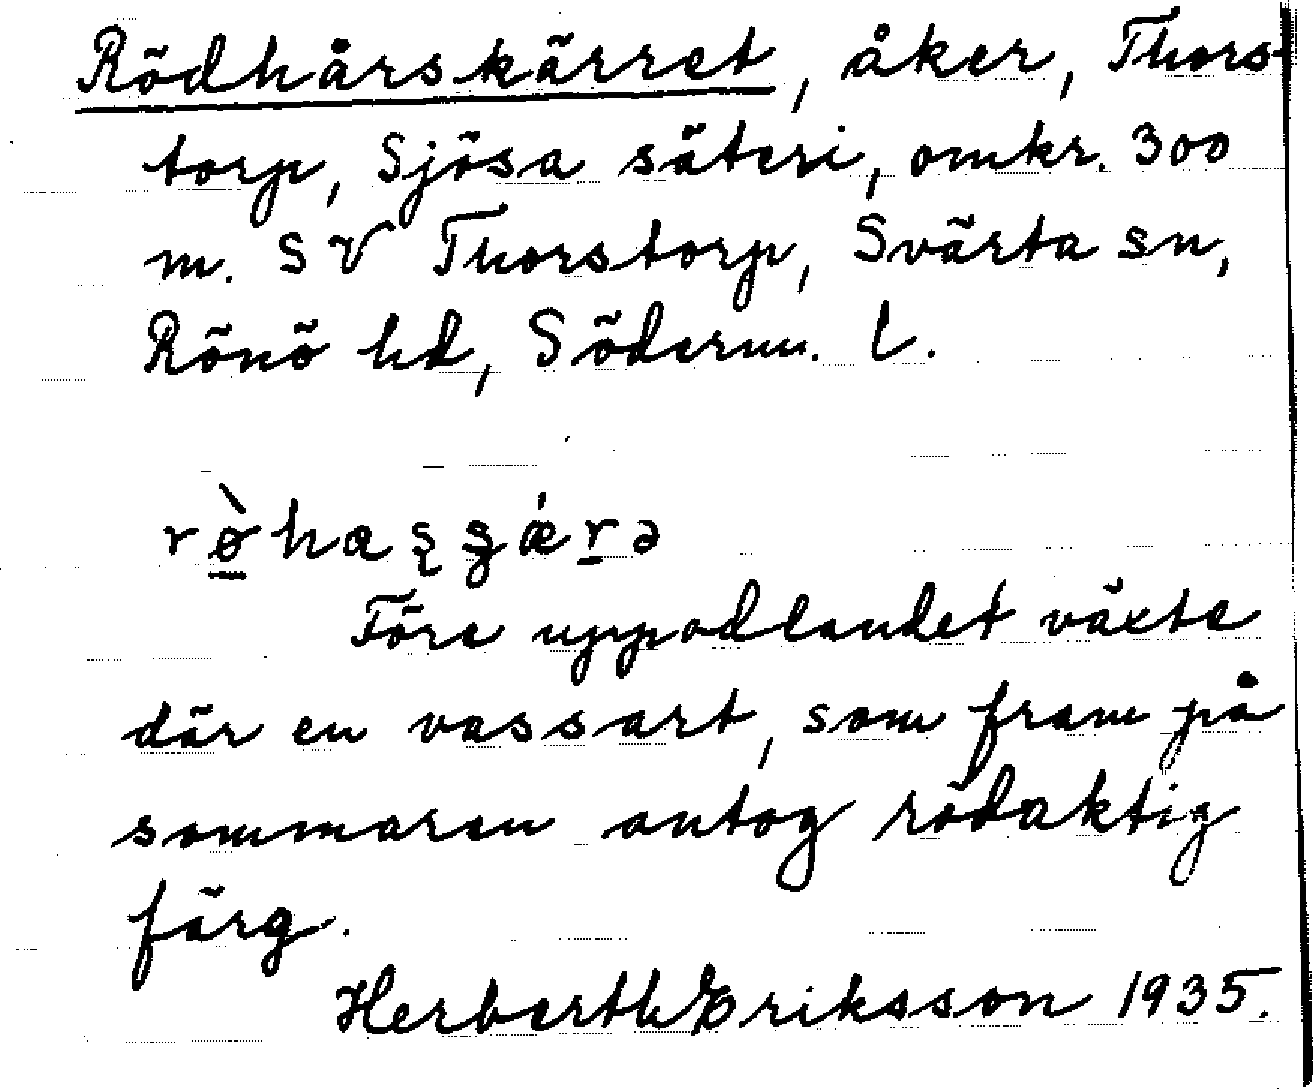 Rödhårskärret, åker, Thors-
torp, Sjösa säteri, omkr. 300
m. SV Thorstorp, Svärta sn,
Rönö hd, Söderm. l.
Före uppodlandet växte
där en vassart, som fram på
sommaren antog rödaktig
färg.
Herberth Eriksson 1935.